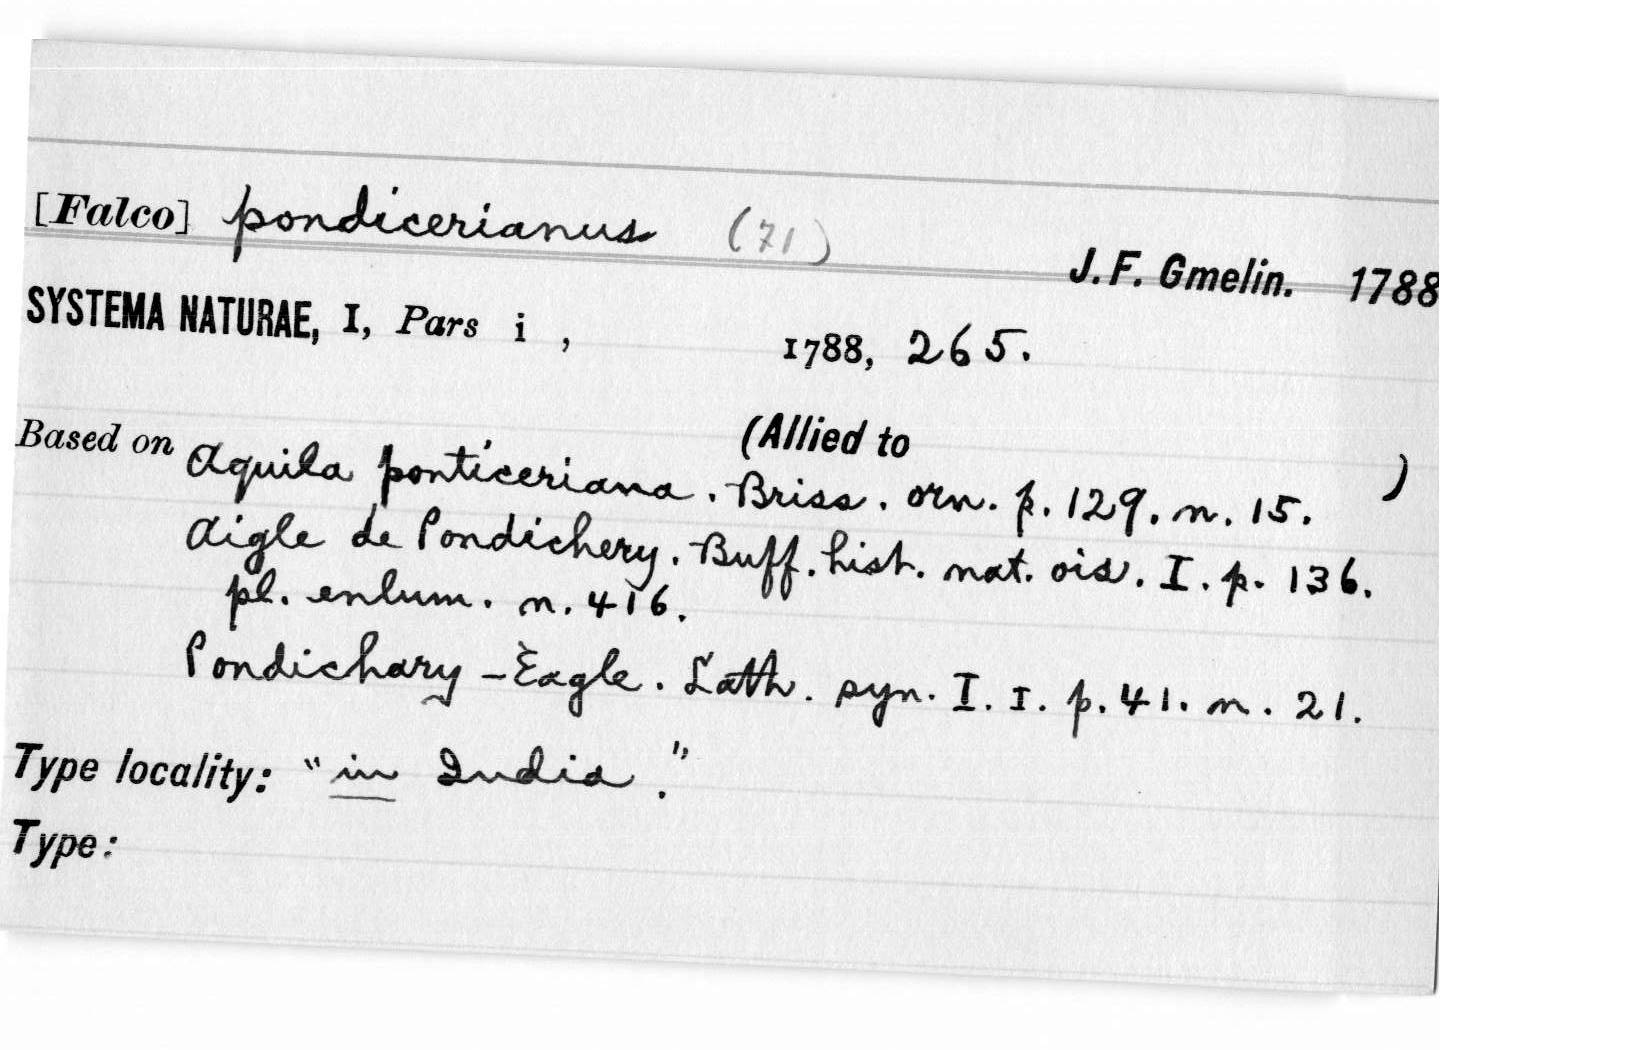 [Falco] pondicerianus (71)
J. F. Gmelin. 1788
SYSTEMA NATURAE, I, Pars i , 1788, 265.
(Allied to )
Based on Aquila ponticeriana. Briss. orn. p. 129. n. 15.
Aigle de Pondichery. Buff. hist. nat. ois. I. p. 136.
pl. enlum. n. 416.
Pondichary-Eagle. Lath. syn. I. I. p. 41. n. 21.
Type locality: "in India."
Type: